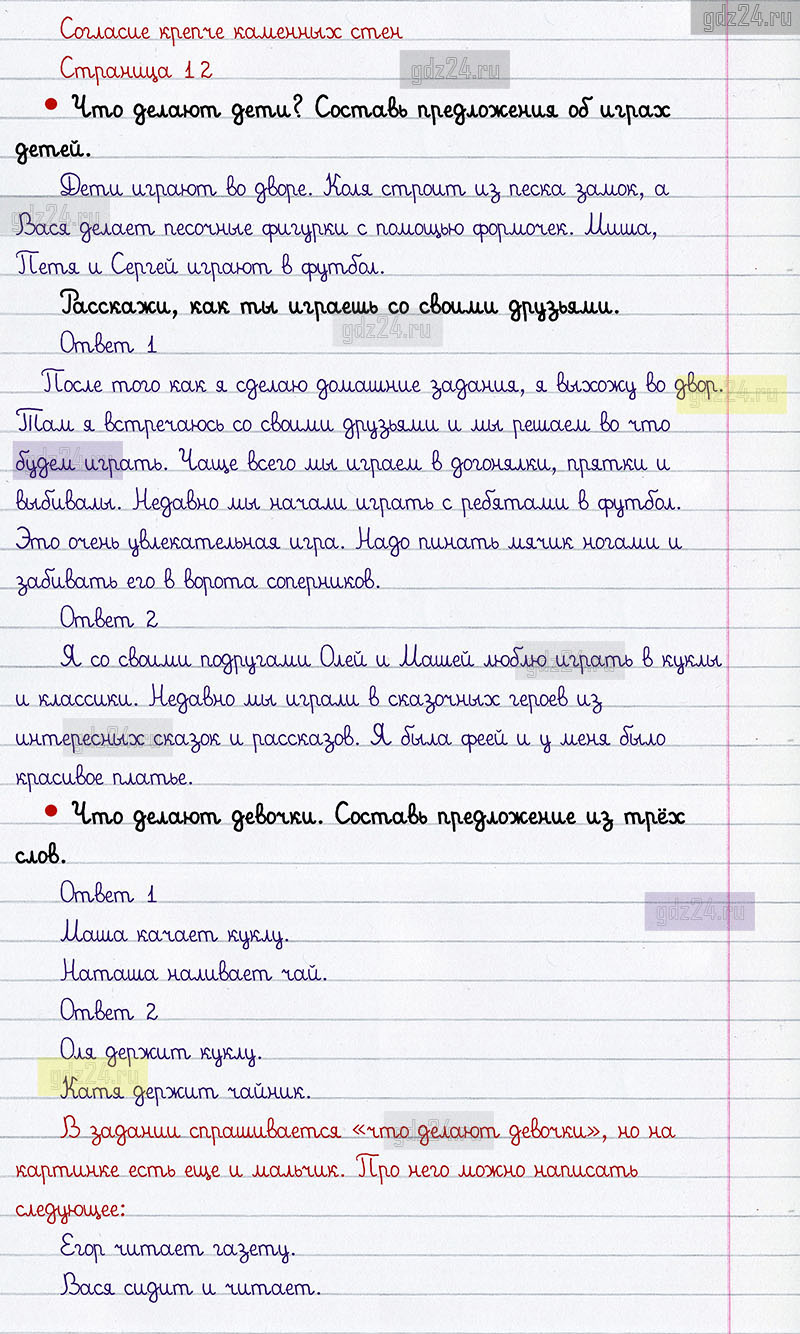 gdz24.ru
Согласие крепче каменных стен
Страница 12
gdz24.ru
• Что делают дети? Составь предложения об играх
детей.
Дети играют во дворе. Коля строит из песка замок, а
gdz24.ru
Вася делает песочные фигурки с помощью формочек. Миша,
Петя и Сергей играют в футбол.
Расскажи, как ты играешь со своими друзьями.
gdz24.ru
Ответ 1
После того как я сделаю домашние задания, я выхожу во двор.
gdz24.ru
Там я встречаюсь со своими друзьями и мы решаем во что
будем играть. Чаще всего мы играем в догонялки, прятки и
gdz24.ru
выбивалы. Недавно мы начали играть с ребятами в футбол.
Это очень увлекательная игра. Надо пинать мячик ногами и
забивать его в ворота соперников.
Ответ 2
Я со своими подругами Олей и Машей люблю играть в куклы
gdz24.ru
и классики. Недавно мы играли в сказочных героев из
интересных сказок и рассказов. Я была феей и у меня было
gdz24.ru
красивое платье.
• Что делают девочки. Составь предложение из трёх
слов.
Ответ 1
gdz24.ru
Маша качает куклу.
Наташа наливает чай.
Ответ 2
Оля держит куклу.
gdz24.ru
Катя держит чайник.
В задании спрашивается «что делают девочки», но на
gdz24.ru
картинке есть еще и мальчик. Про него можно написать
следующее:
Егор читает газету.
Вася сидит и читает.